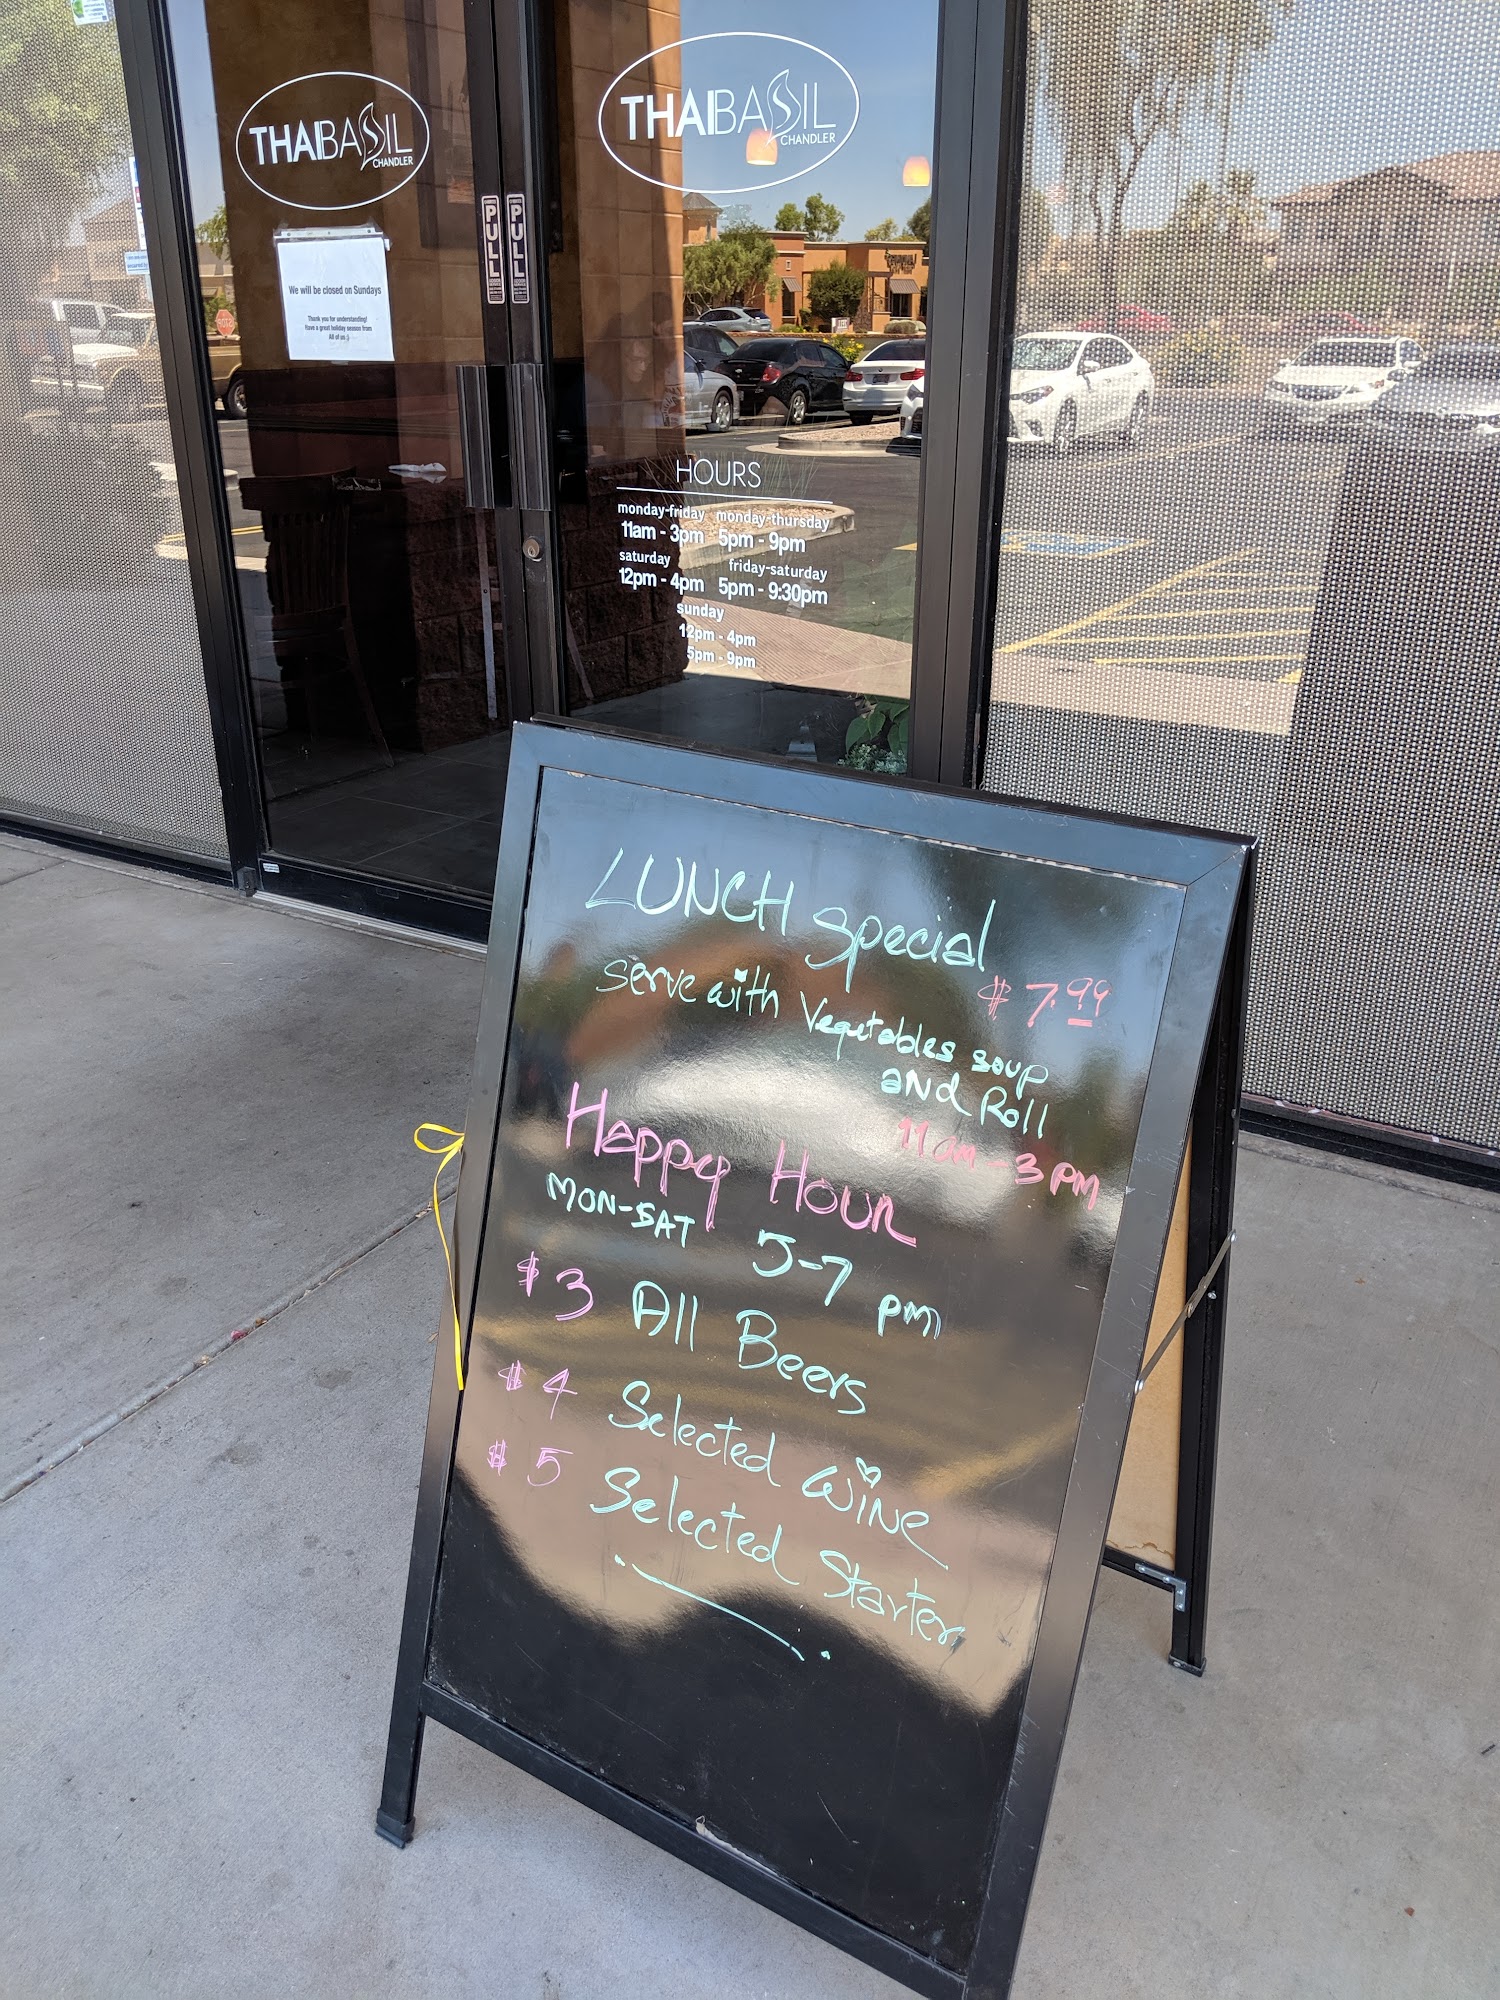 THAIBASIL
CHANDLER
THAIBASIL
CHANDLER
PULL
PULL
We will be closed on Sundays
Thank you for understanding!
Have a great holiday season from
All of us :)
HOURS
monday-friday monday-thursday
11am - 3pm 5pm - 9pm
saturday friday-saturday
12pm - 4pm 5pm - 9:30pm
sunday
12pm - 4pm
5pm - 9pm
LUNCH special
$7.99
serve with Vegetables soup
and Roll
11am-3pm
Happy Hour
MON-SAT 5-7 pm
$3 All Beers
$4 Selected wine
$5 Selected Starter